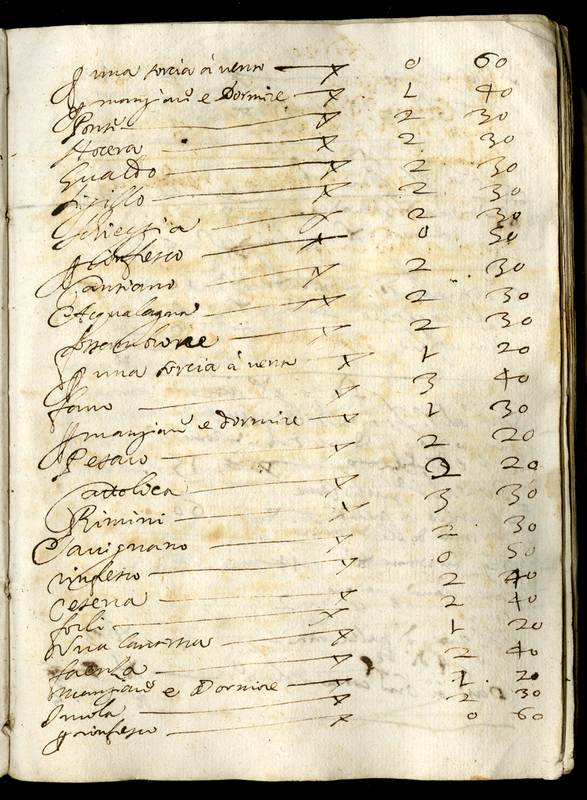 una torcia à vento 0 60
mangiare e dormire 1 40
Ponte 2 30
Nocera 2 30
Gualdo 2 30
Sigillo 2 30
Scheggia 2 30
rinfresco 0 50
Cantiano 2 30
Acqualagna 2 30
fossombrone 2 30
una torcia à vento 1 20
fano 3 40
mangiare e dormire 1 30
Pesaro 2 20
Cattolica 2 20
Rimini 3 30
Savignano 2 30
rinfresco 0 50
Cesena 2 40
forli 2 40
Una lanterna 1 20
faenza 2 40
mangiare e dormire 1 20
Imola 2 30
rinfresco 0 60